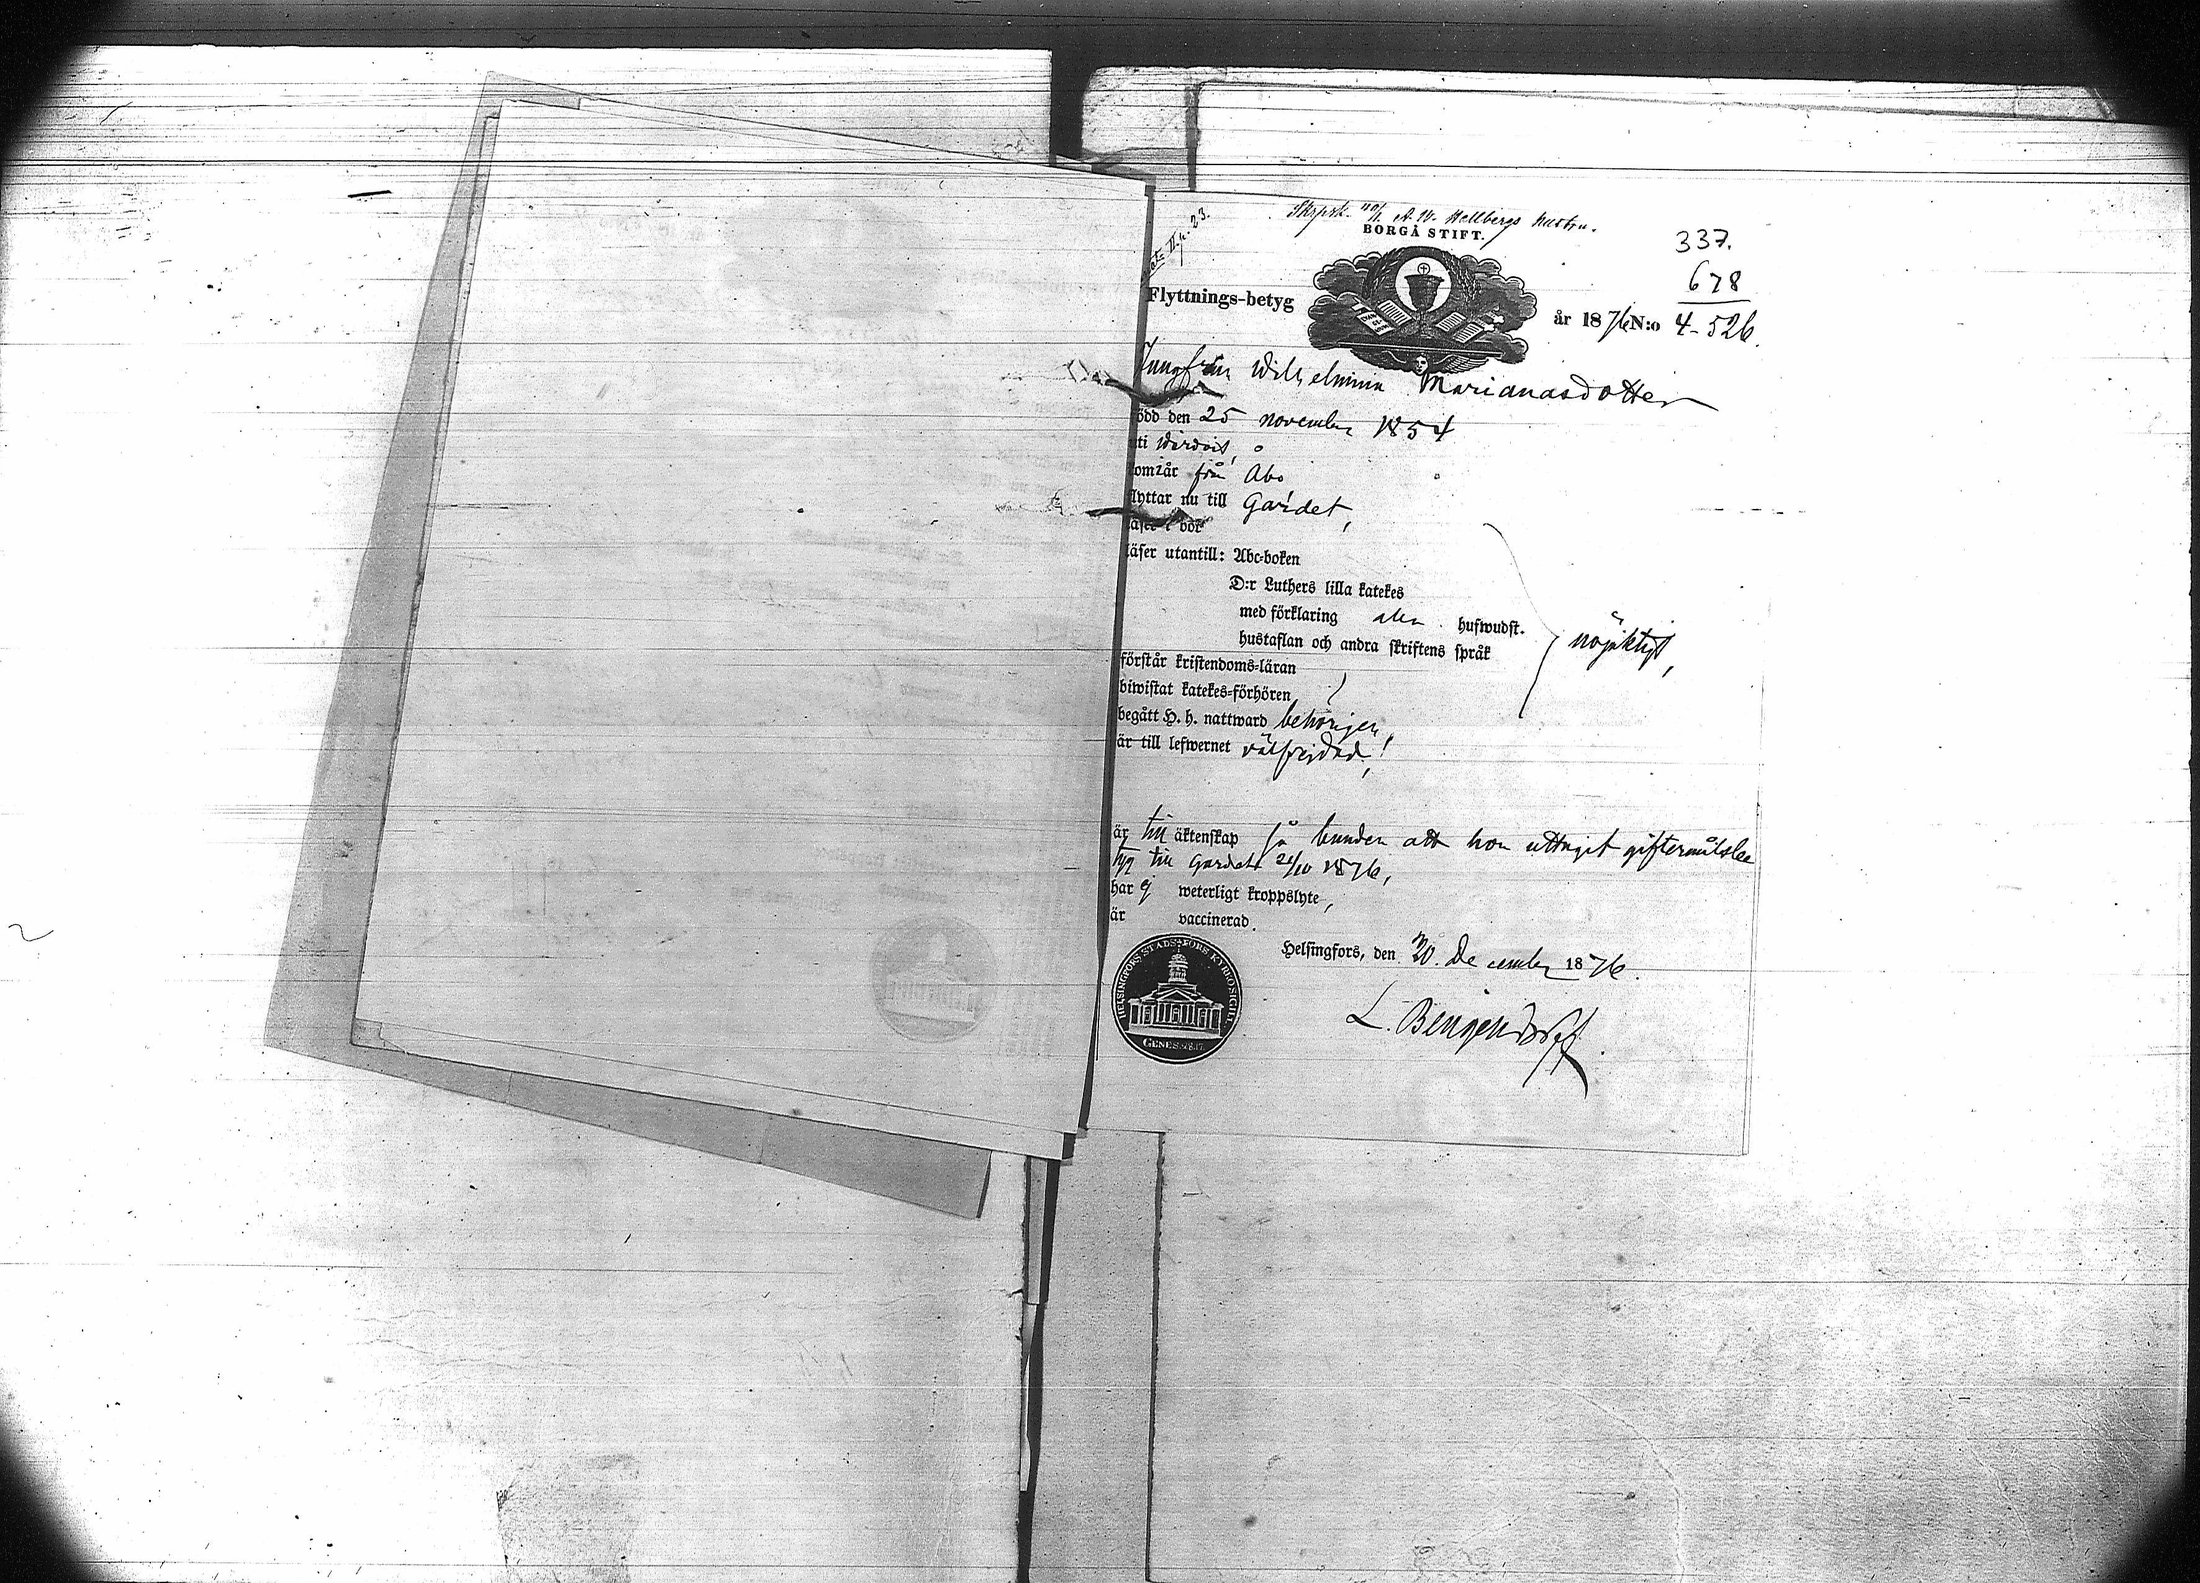 Skrpsk. A. W. Hellbergs hustru.
II. p. 23.
BORGÅ STIFT.
337.
678
Flyttnings-betyg år 1876 N:o 4-526.
Jungfrun Wilhelmina Marianasdotter
född den 25 november 1854
uti
från Åbo
flyttar nu till Gardet,
läser i bok
läser utantill: Abc-boken
D:r Luthers lilla katekes
med förklaring alla hufwudst.
hustaflan och andra skriftens språk
nöjaktigt,
förstår kristendoms-läran
biwistat katekes-förhören
begått H. h. nattward behörigen,
är till lefwernet välfrejdad,
är till äktenskap så bunden att hon uttagit giftermålsbe
tyg till Gardet 21/10 1876,
har ej weterligt kroppslyte,
är vaccinerad.
Helsingfors, den 20. December 1876.
HELSINGFORS STADS-FÖRS. KYRKOSIGILL.
GENES. 28.17.
L. Bengelsdorff